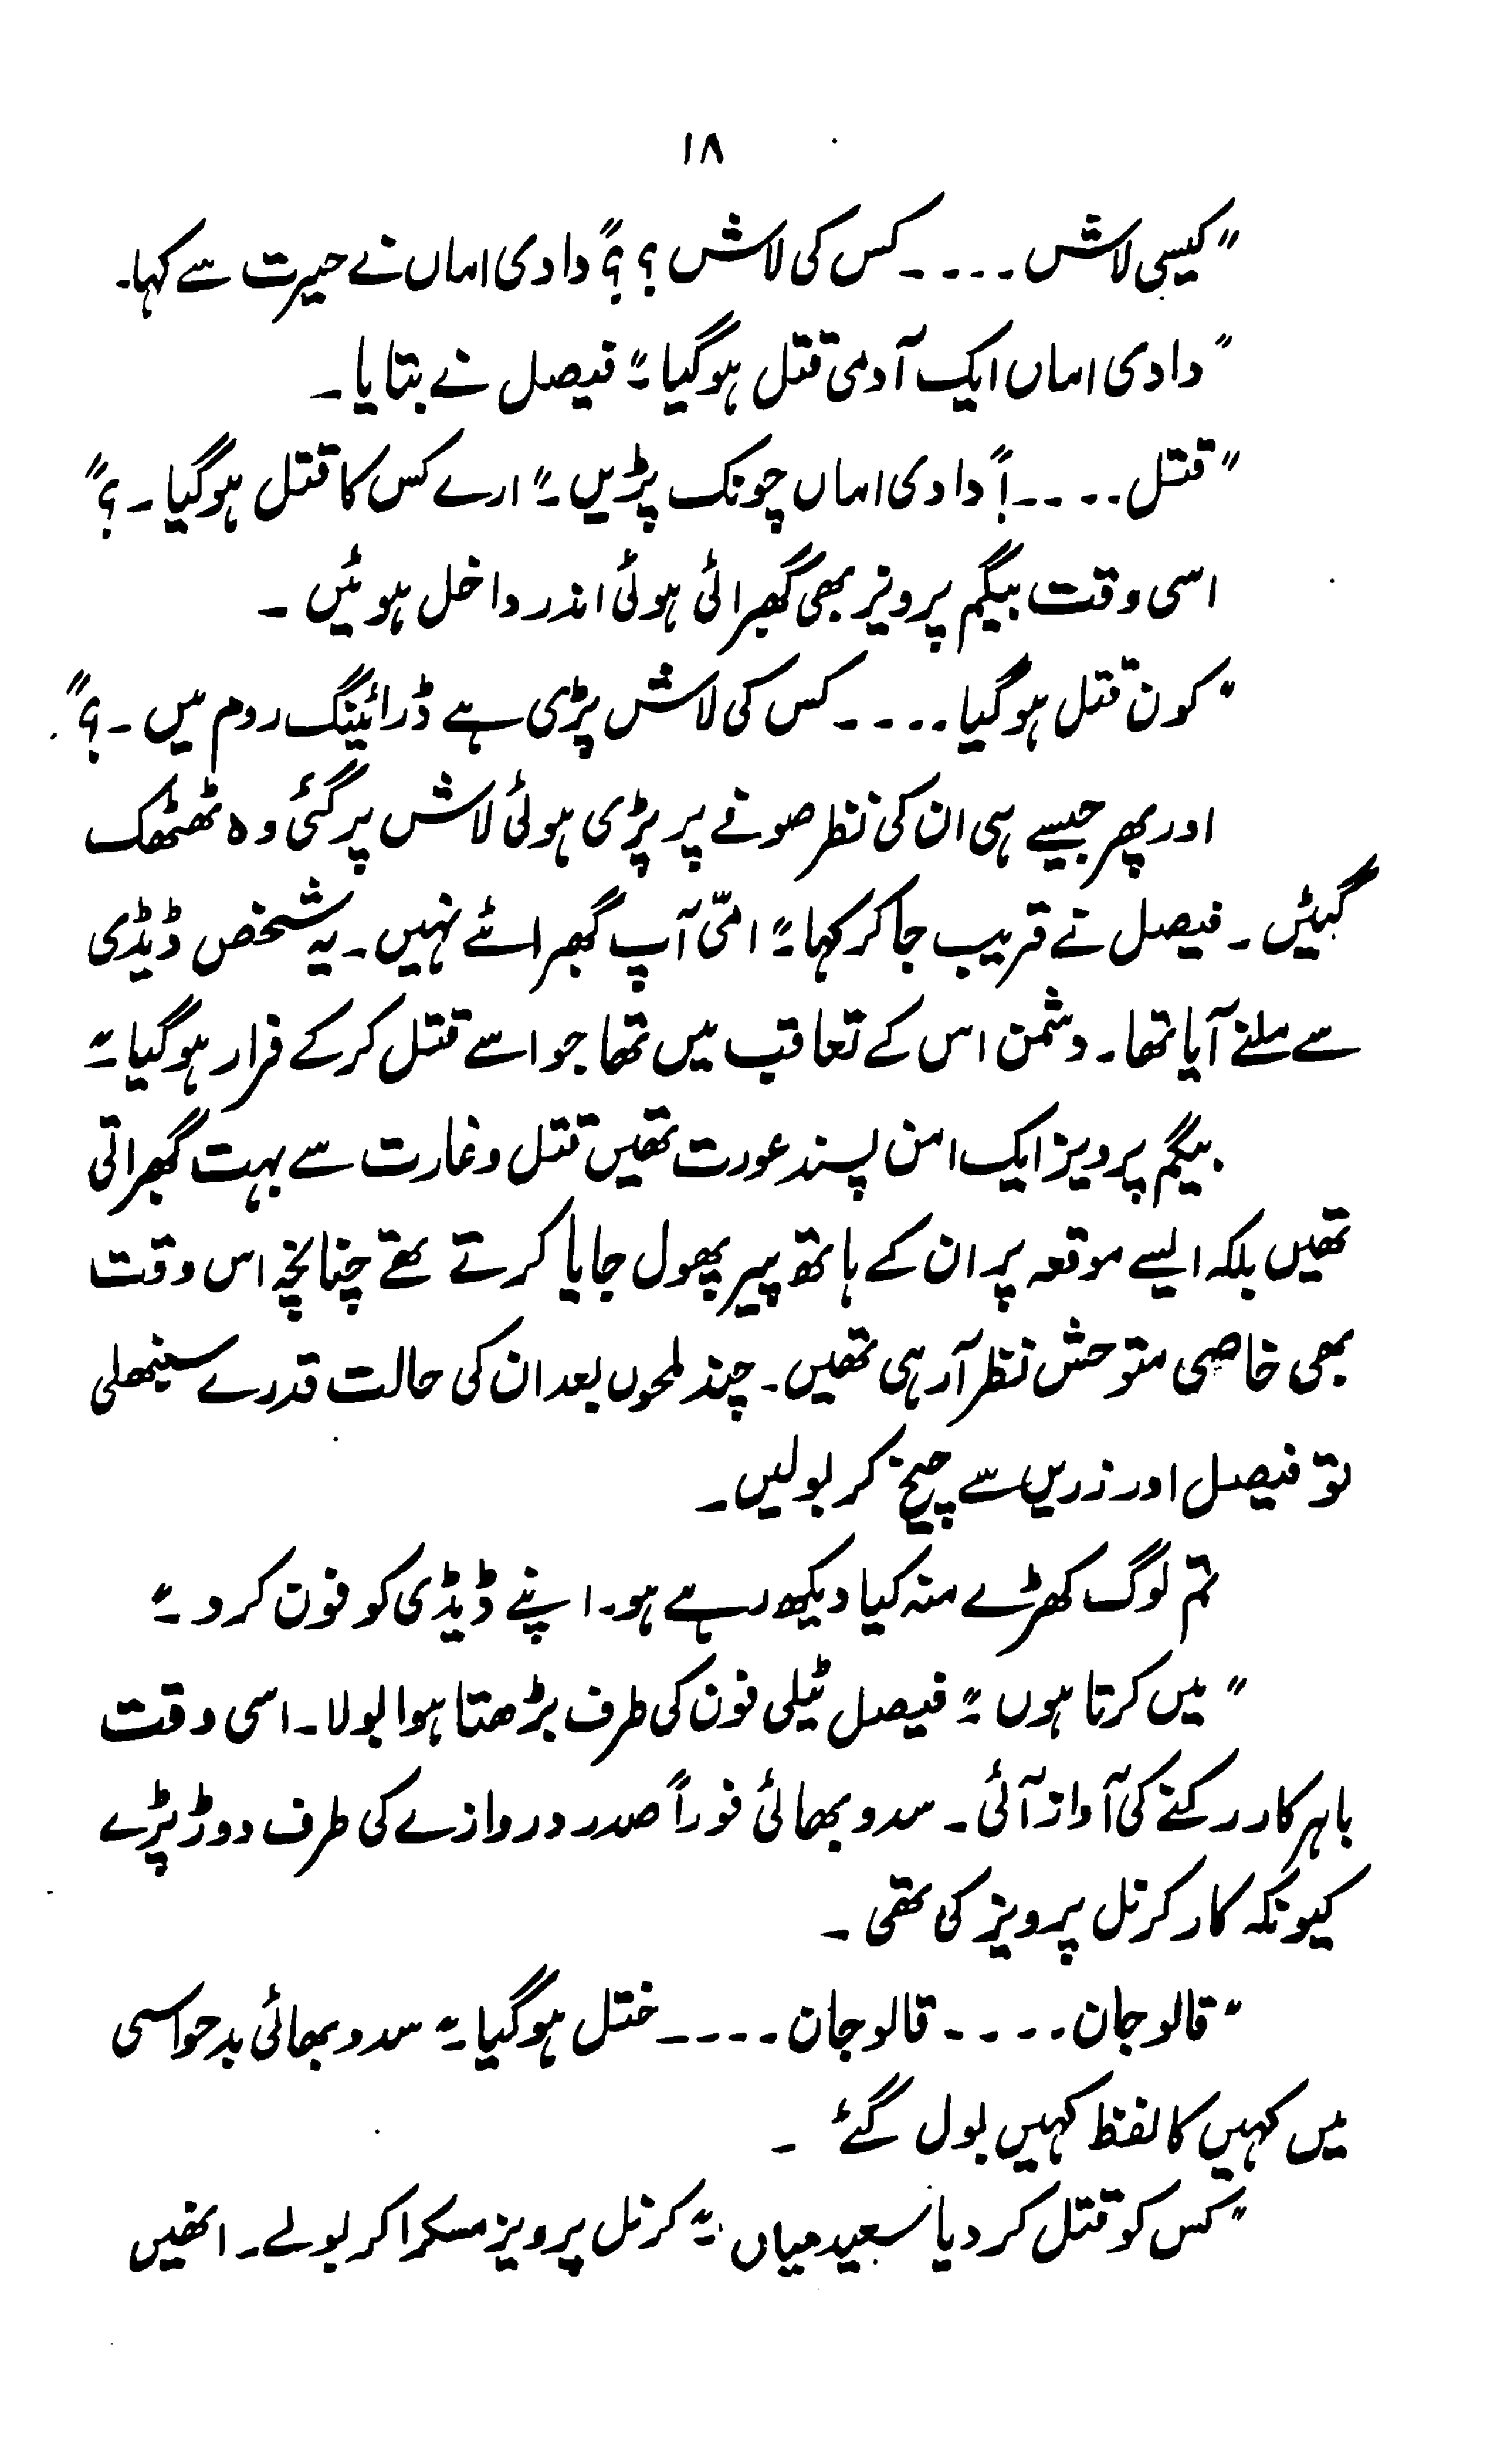 ۱۸
"کیسی لاش ۔۔۔۔ کس کی لاش ؟ ؟" دادی اماں نے حیرت سے کہا۔
"دادی اماں ایک آدمی قتل ہوگیا ۔" فیصل نے بتایا ۔
"قتل ۔۔۔۔ !" دادی اماں چونک پڑیں ۔" ارے کس کا قتل ہوگیا ۔ ؟"
اسی وقت بیگم پرویز بھی گھبرائی ہوئی اندر داخل ہوئیں ۔
"کون قتل ہوگیا ۔۔۔۔ کس کی لاش پڑی ہے ڈرائینگ روم میں ۔ ؟"
اور پھر جیسے ہی ان کی نظر صوفے پر پڑی ہوئی لاش پر گئی وہ ٹھٹھک
گئیں ۔ فیصل نے قریب جا کر کہا ۔" امّی آپ گھبرائے نہیں ۔ یہ شخص ڈیڈی
سے ملنے آیا تھا ۔ دشمن اس کے تعاقب میں تھا جو اسے قتل کر کے فرار ہوگیا ۔"
بیگم پرویز ایک امن پسند عورت تھیں قتل و غارت سے بہت گھبراتی
تھیں بلکہ ایسے موقعہ پر ان کے ہاتھ پیر پھول جایا کرتے تھے چنانچہ اس وقت
بھی خاصی متوحش نظر آرہی تھیں ۔ چند لمحوں بعد ان کی حالت قدرے سنبھلی
تو فیصل اور زریں سے چیخ کر بولیں ۔
تم لوگ کھڑے منہ کیا دیکھ رہے ہو ۔ اپنے ڈیڈی کو فون کرو ۔"
"میں کرتا ہوں ۔" فیصل ٹیلی فون کی طرف بڑھتا ہوا بولا ۔ اسی وقت
باہر کار رکنے کی آواز آئی ۔ سدو بھائی فوراً صدر دروازے کی طرف دوڑ پڑے
کیونکہ کار کرنل پرویز کی تھی ۔
"قالو جان ۔۔۔۔ قالو جان ۔۔۔۔ ختل ہوگیا ۔" سدو بھائی بدحواسی
میں کہیں کا لفظ کہیں بول گئے ۔
"کس کو قتل کردیا سعید میاں ۔" کرنل پرویز مسکرا کر بولے ۔ انھیں